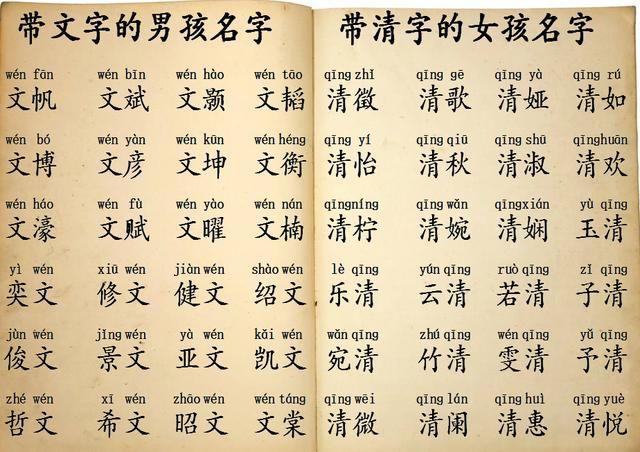 带文字的男孩名字
wén fān wén bīn wén hào wén tāo
文帆 文斌 文颢 文韬
wén bó wén yàn wén kūn wén héng
文博 文彦 文坤 文衡
wén háo wén fù wén yào wén nán
文濠 文赋 文曜 文楠
yì wén xiū wén jiàn wén shào wén
奕文 修文 健文 绍文
jùn wén jǐng wén yà wén kǎi wén
俊文 景文 亚文 凯文
zhé wén xī wén zhāo wén wén táng
哲文 希文 昭文 文棠
带清字的女孩名字
qīng zhǐ qīng gē qīng yà qīng rú
清徵 清歌 清娅 清如
qīng yí qīng qiū qīng shū qīnghuān
清怡 清秋 清淑 清欢
qīngníng qīng wǎn qīngxián yù qīng
清柠 清婉 清娴 玉清
lè qīng yún qīng ruò qīng zǐ qīng
乐清 云清 若清 子清
wǎn qīng zhú qīng wén qīng yǔ qīng
宛清 竹清 雯清 予清
qīng wēi qīng lán qīng huì qīng yuè
清微 清阑 清惠 清悦